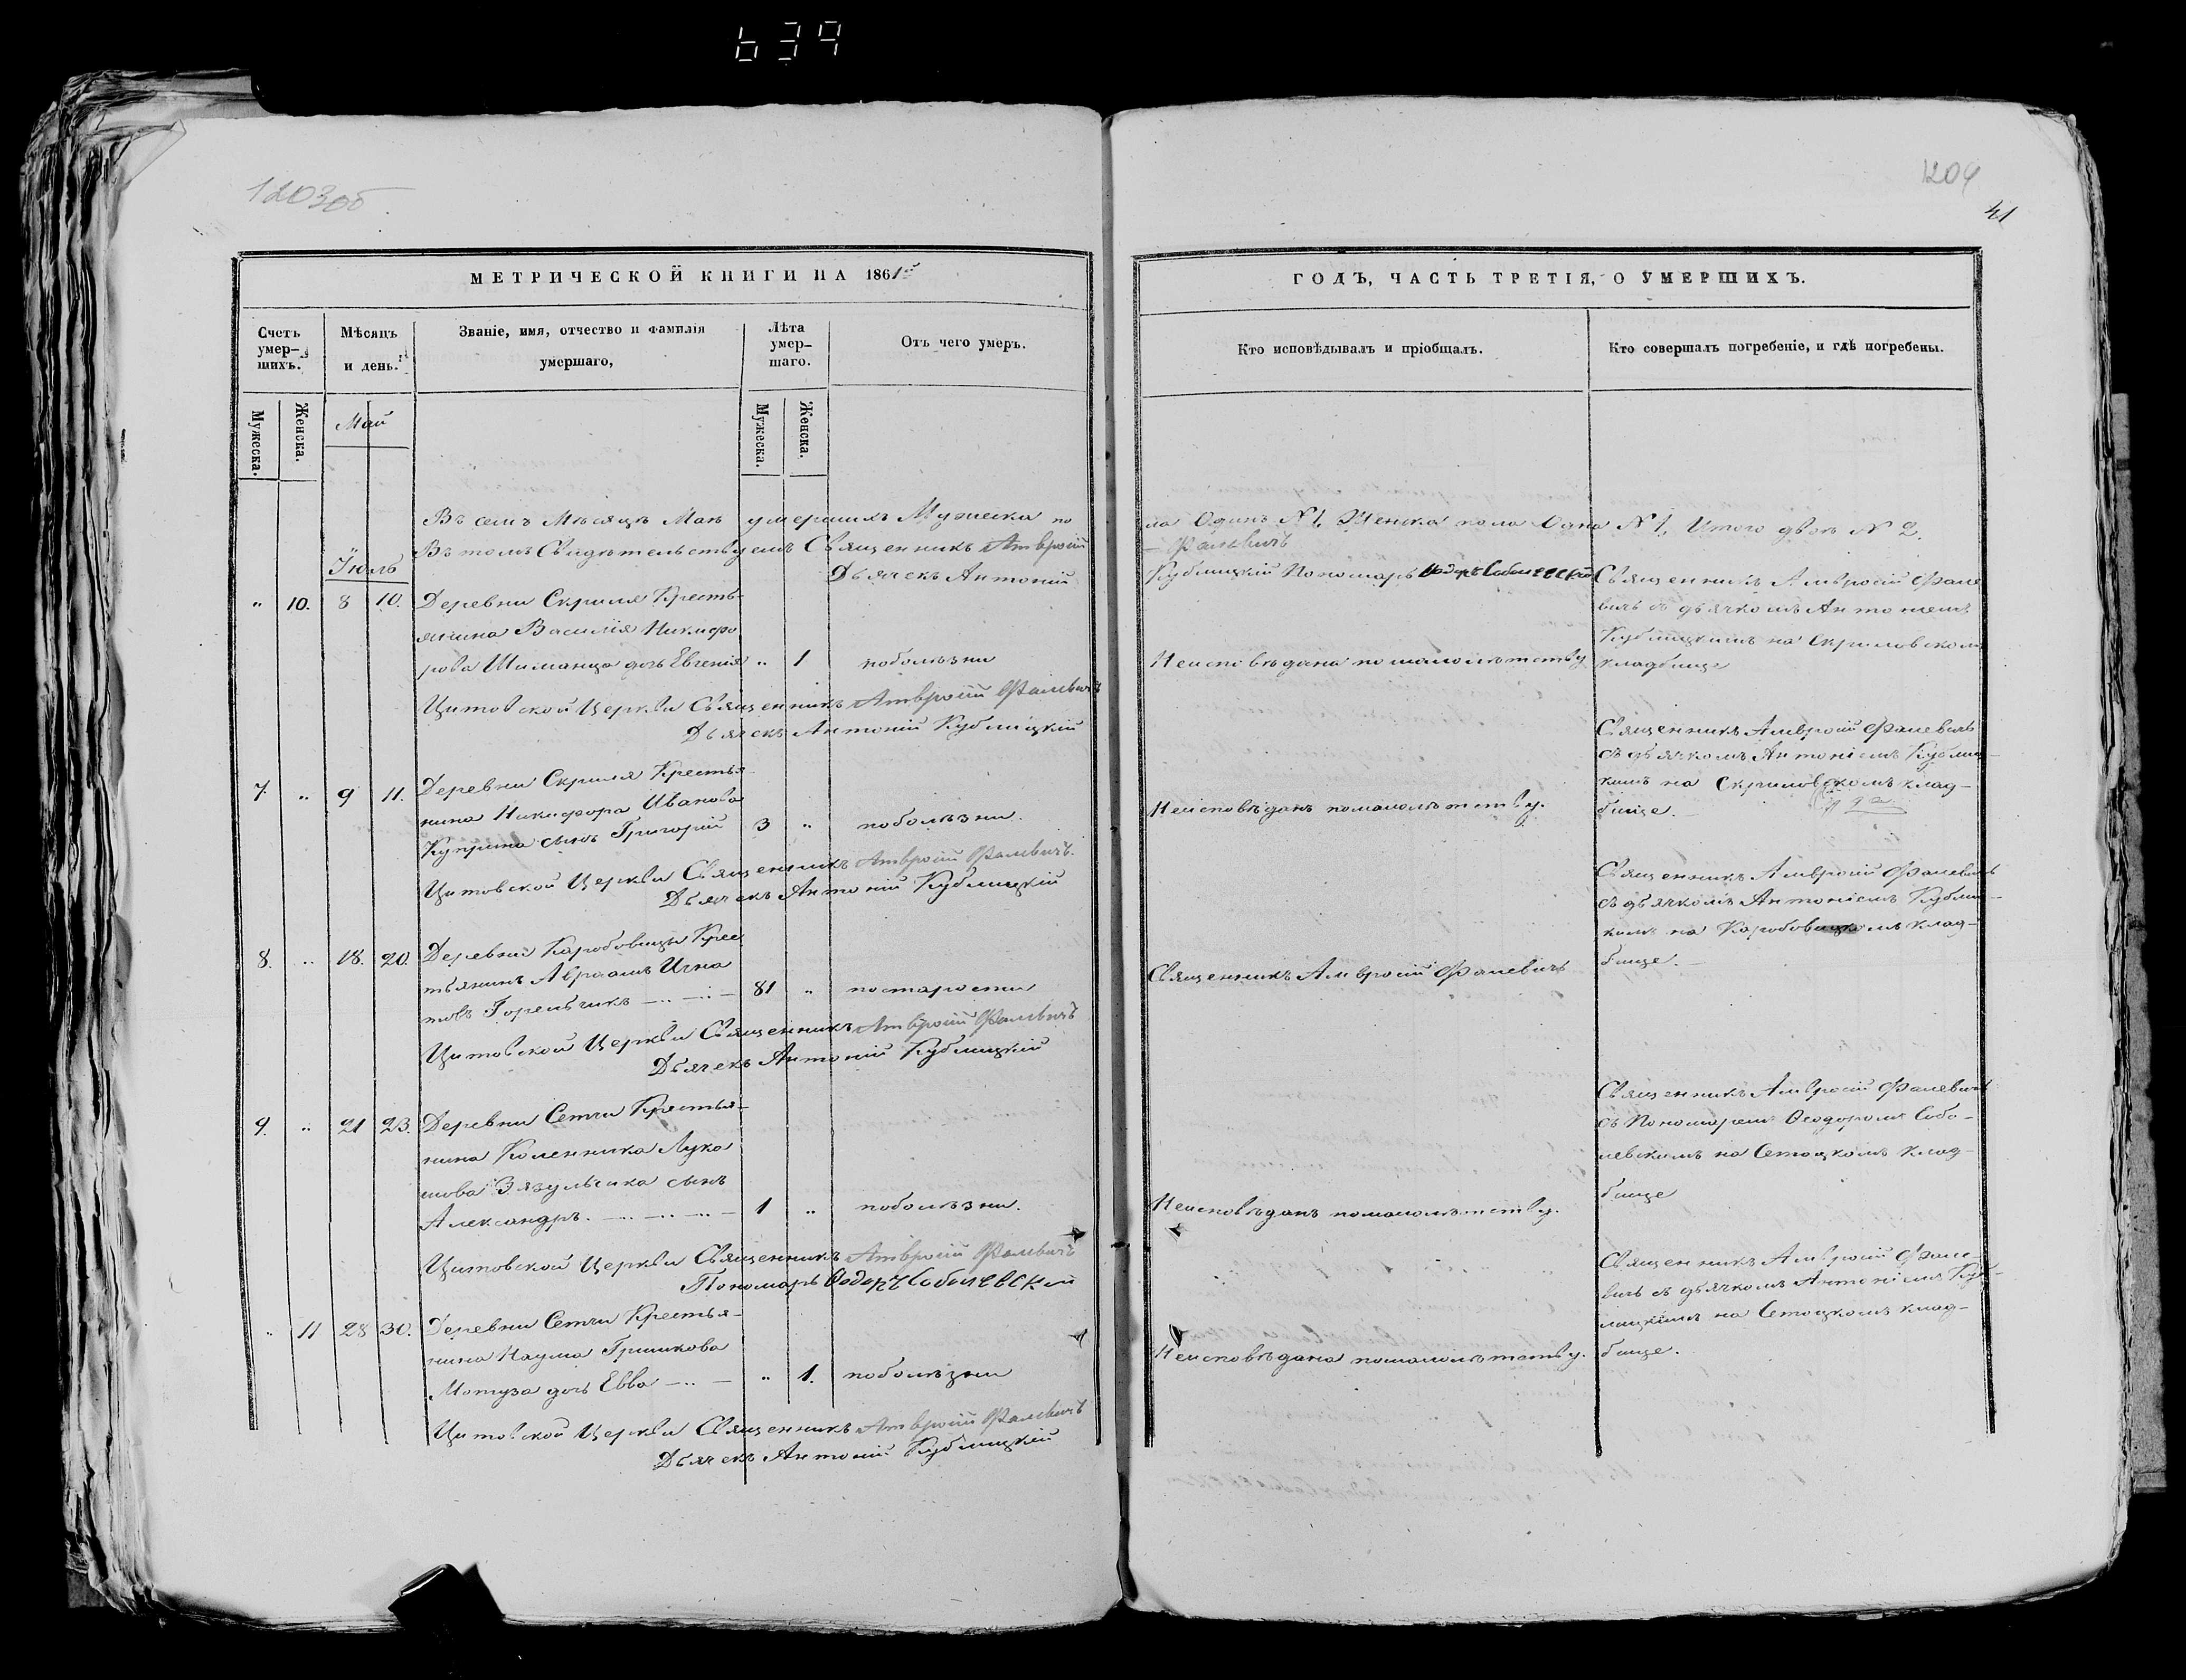 639
1203об
1204
41
МЕТРИЧЕСКОЙ КНИГИ НА 1861й
ГОДЪ, ЧАСТЬ ТРЕТІЯ, О УМЕРШИХЪ.
Счетъ умер-шихъ.
Мѣсяцъ и день.
Званіе, имя, отчество и фамилія умершаго,
Лѣта умер-шаго.
Отъ чего умеръ.
Кто исповѣдывалъ и пріобщалъ.
Кто совершалъ погребеніе, и гдѣ погребены.
Мужеска.
Женска.
Май
Мужеска.
Женска.
Въ семъ Мѣсяцѣ Маѣ умершихъ Мужеска по
ла Одинъ N 1, Женска пола Одна N 1, Итого двое N 2.
Въ томъ Свидѣтельствуемъ Священникъ Амвросій
Фалевичъ
Дьячекъ Антоній
Кублицкій Пономарь Ѳедоръ Соболевскій
Іюль
" 10. 8 10.
Деревни Скриля Кресть-
янина Василія Никифо
рова Шиманца дочь Евгенія " 1 по болѣзни
Неисповѣдана по малолѣтству
Священникъ Амвросій Фале
вичъ съ дьячкомъ Антоніемъ
Кублицкимъ на Скриловском
кладбище
Цитовской Церкви Священникъ Амвросій Фалевичъ
Дьячекъ Антоній Кублицкій
7. " 9 11.
Деревни Скриля Крестья
нина Никифора Иванова
Куприна сынъ Григорій 3 " по болѣзни.
Неисповѣданъ по малолѣтству.
Священникъ Амвросій Фалевичъ
съ дьячкомъ Антоніемъ Кублиц-
кимъ на Скриловскомъ клад-
бище.
Цитовской Церкви Священникъ Амвросій Фалевичъ.
Дьячекъ Антоній Кублицкій
8. " 18. 20.
Деревни Коробовщи Крес
тьянинъ Авраамъ Игна
товъ Горельчикъ 81 " по старости
Священникъ Амвросій Фалевичъ
Священникъ Амвросій Фалевичъ
съ дьячкомъ Антоніемъ Кублиц-
кимъ на клад-
бище.
Цитовской Церкви Священникъ Амвросій Фалевичъ
Дьячекъ Антоній Кублицкій
9. " 21 23.
Деревни Сетчи Крестья-
нина Каленника Лука
шова сынъ
Александръ. 1 " по болѣзни.
Неисповѣданъ по малолѣтству.
Священникъ Амвросій Фалевичъ
съ Пономаремъ Ѳеодоромъ Собо-
левскимъ на Сетоцкомъ клад-
бище
Цитовской Церкви Священникъ Амвросій Фалевичъ
Пономарь Ѳедоръ Соболевскій
" 11 28 30.
Деревни Сетчи Крестья-
нина Наума Гришкова
Мотуза дочь Евва " 1. по болѣзни
Неисповѣдана по малолѣтству.
Священникъ Амвросій Фале-
вичъ съ дьячкомъ Антоніемъ Куб-
лицкимъ на Сетоцкомъ клад-
бище.
Цитовской Церкви Священникъ Амвросій Фалевичъ
Дьячекъ Антоній Кублицкій